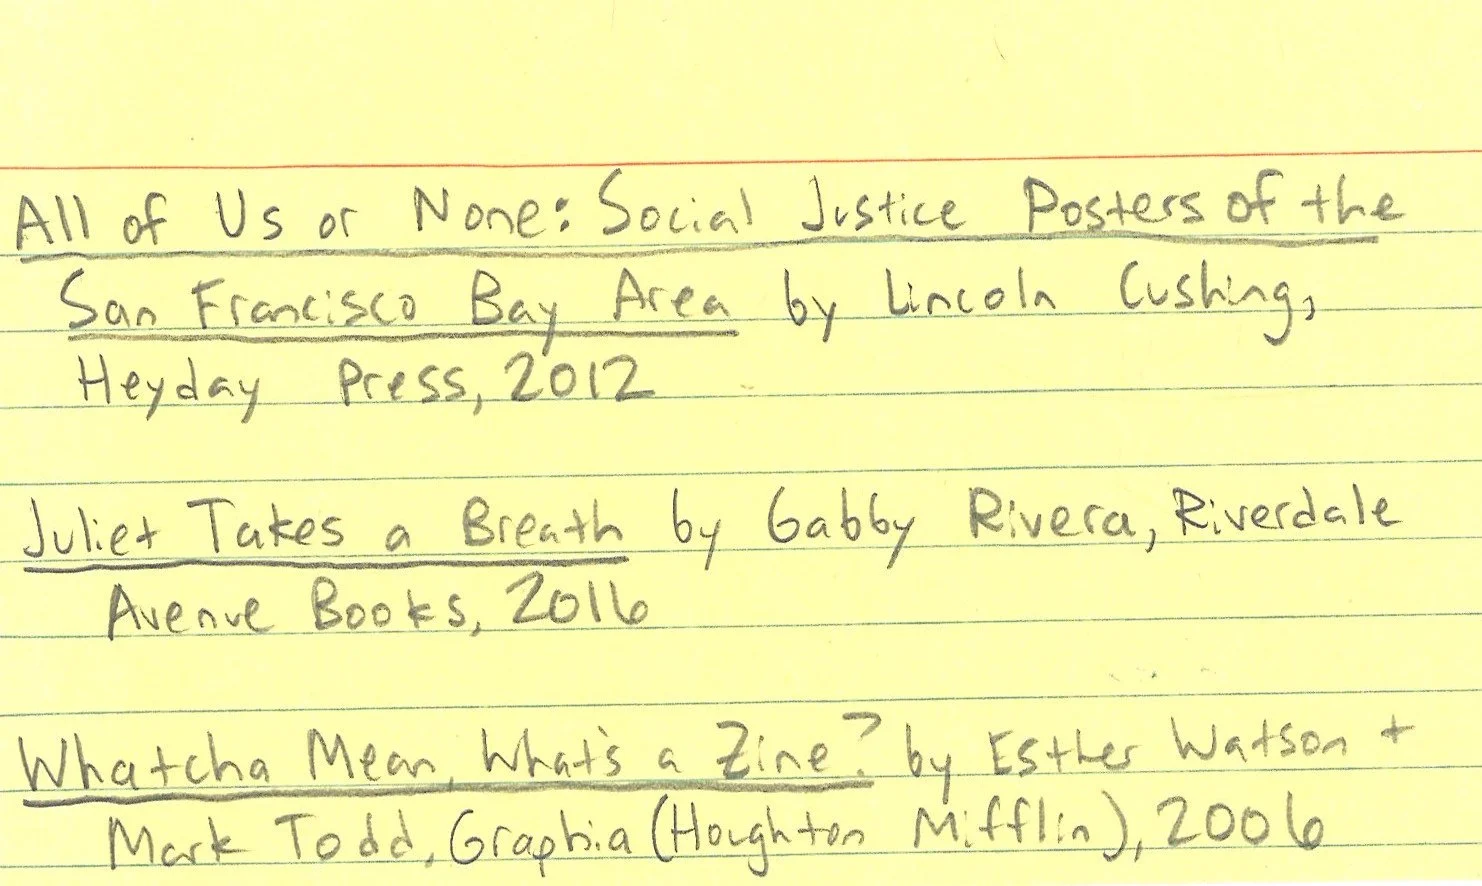 All of Us or None: Social Justice Posters of the
San Francisco Bay Area by Lincoln Cushing,
Heyday Press, 2012
Juliet Takes a Breath by Gabby Rivera, Riverdale
Avenue Books, 2016
Whatcha Mean, What's a Zine? by Esther Watson +
Mark Todd, Graphia (Houghton Mifflin), 2006